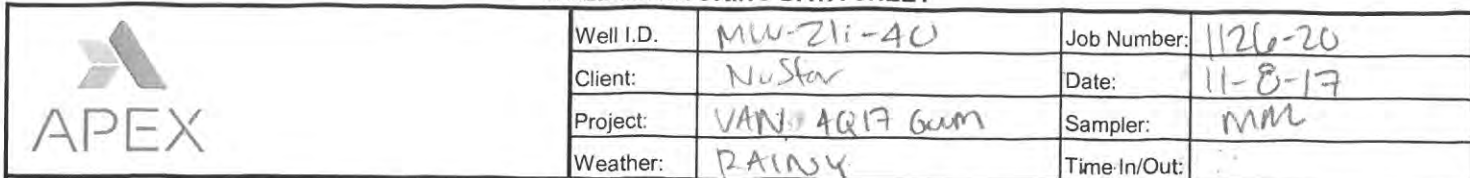 Well I.D. MW-21i-40 Job Number: 1126-20
APEX Client: NuStar Date: 11-8-17
Project: VAN 4Q17 GWM Sampler: MM
Weather: RAINY Time In/Out: